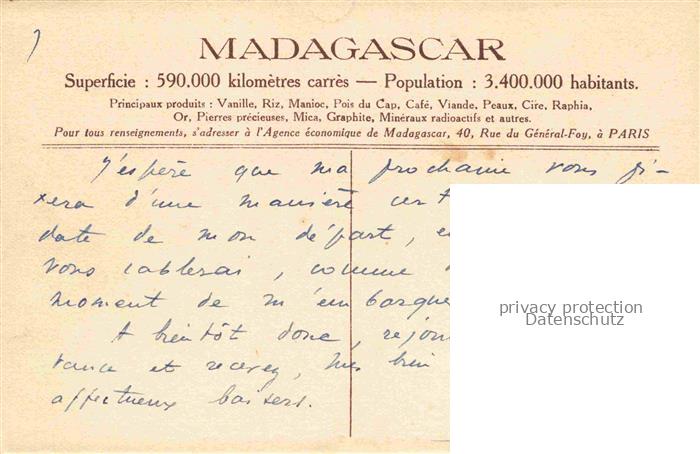 MADAGASCAR
Superficie : 590.000 kilomètres carrès — Population : 3.400.000 habitants.
Principaux produits : Vanille, Riz, Manioc, Pois du Cap, Café, Viande, Peaux, Cire, Raphia,
Or, Pierres précieuses, Mica, Graphite, Minéraux radioactifs et autres.
Pour tous renseignements, s'adresser à l'Agence économique de Madagascar, 40, Rue du Général-Foy, à PARIS
J'espère que ma prochaine vous fi-
xera d'une manière cert
date de mon départ, e
vous cablerai, comme
moment de m'embarque
A bientôt donc, rejoui
vance et recevez, mes bien
affectueux baisers.
privacy protection
Datenschutz